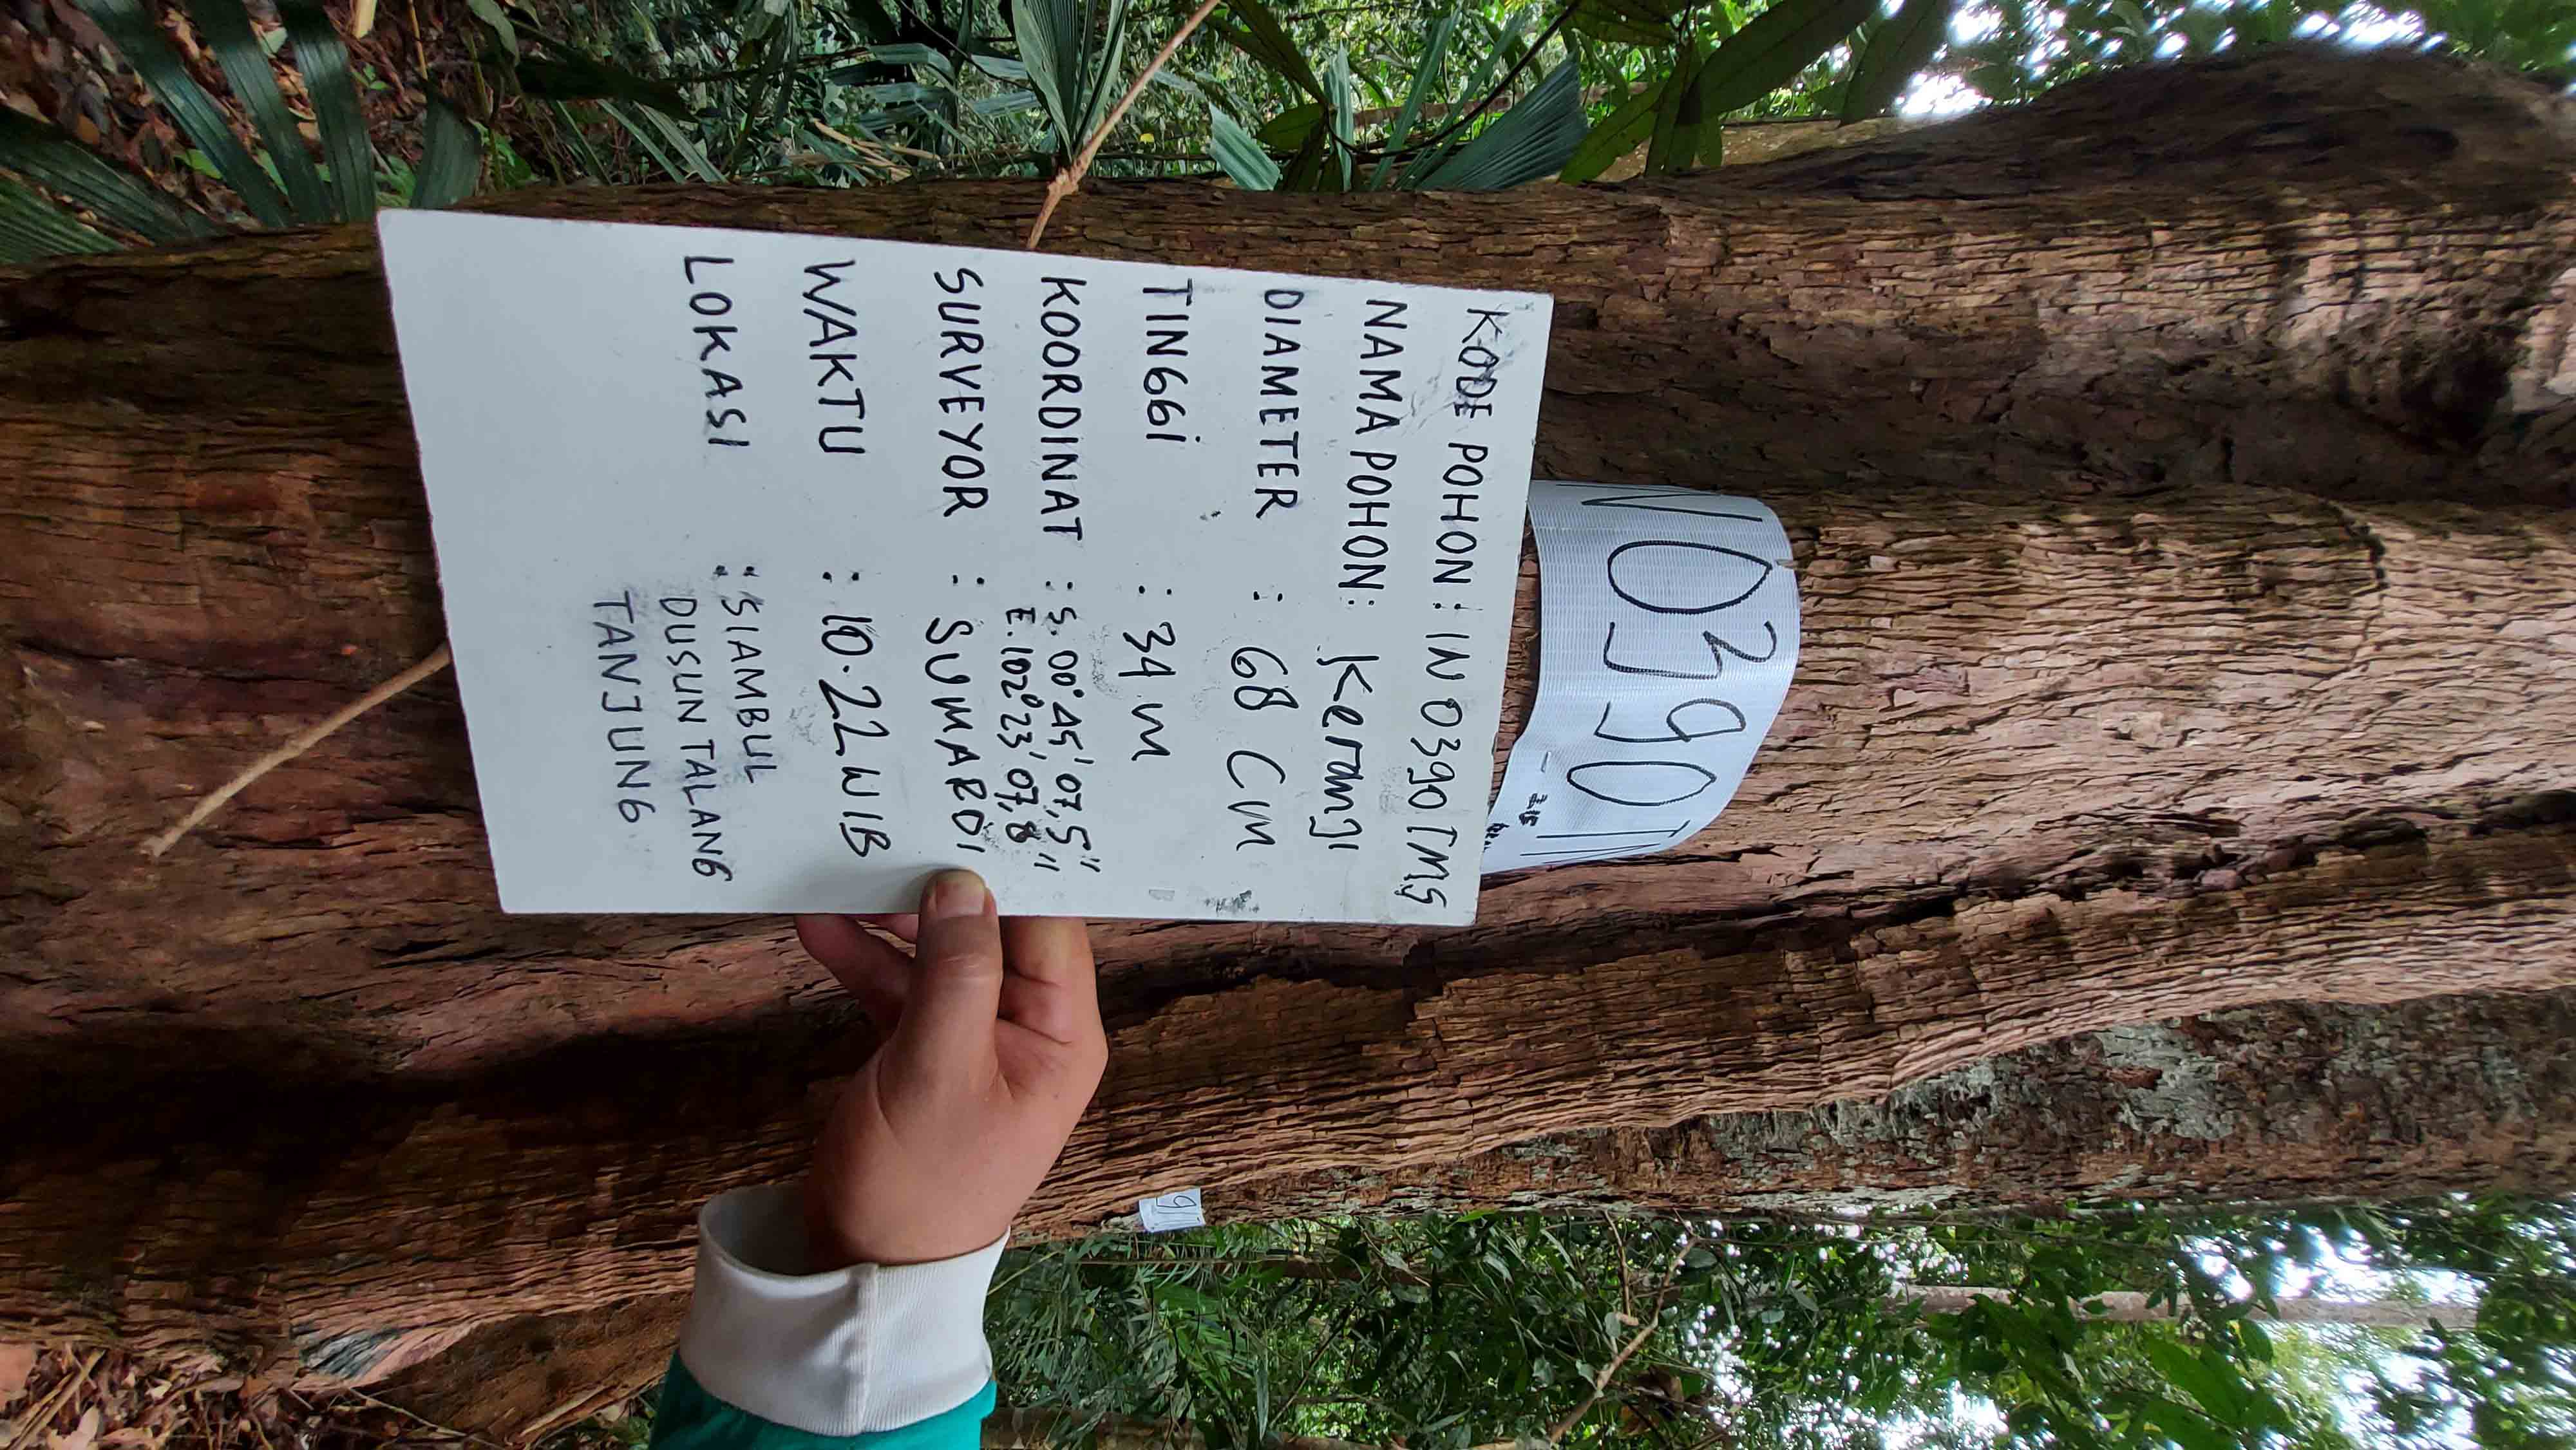 N0390TM
KODE POHON : IN 0390 TMS
NAMA POHON : Keranji
DIAMETER : 68 Cm
TINGGi : 34 m
KOORDINAT : S. 00° 45' 07,5"
E. 102° 23' 07,8"
SURVEYOR : SUMARDI
WAKTU : 10.22 WIB
LOKASI : SIAMBUL
DUSUN TALANG
TANJUNG
91